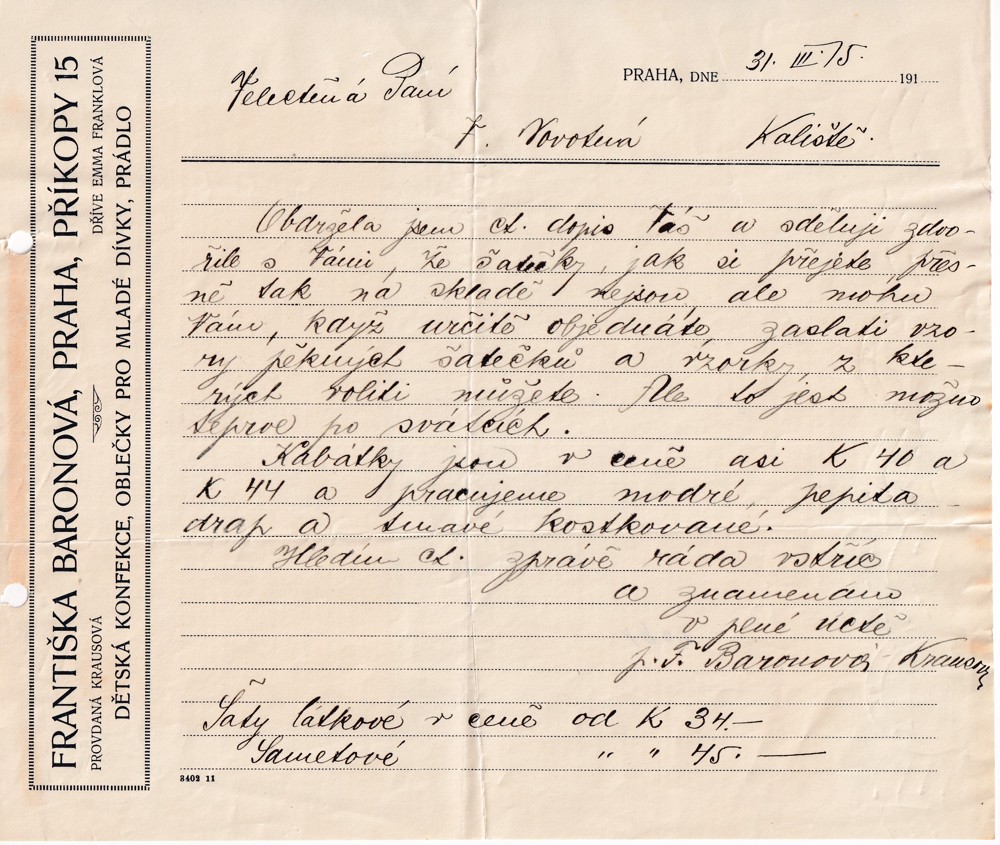 FRANTIŠKA BARONOVÁ, PRAHA, PŘÍKOPY 15
PROVDANÁ KRAUSOVÁ
DŘÍVE EMMA FRANKLOVÁ
DĚTSKÁ KONFEKCE, OBLEČKY PRO MLADÉ DÍVKY, PRÁDLO
PRAHA, DNE 31. III. 15. 191
Velectěná Paní
F. Novotná Kaliště.
Obdržela jsem ct. dopis Váš a sděluji zdvo-
řile s Vámi, že šatečky, jak si přejete, přes-
ně tak na skladě nejsou, ale mohu
Vám, když určitě objednáte, zaslati vzo-
ry pěkných šatečků a vzorky, z kte-
rých voliti můžete. Ale to jest možno
teprve po svátcích.
Kabátky jsou v ceně asi K 40 a
K 44 a pracujeme modré, pepita
drap a tmavé kostkované.
Hledím ct. zprávě ráda vstříc
a znamenám
v plné úctě
p. F. Baronová Krausová
Šaty látkové v ceně od K 34.—
Sametové " " 45.—
8402 11